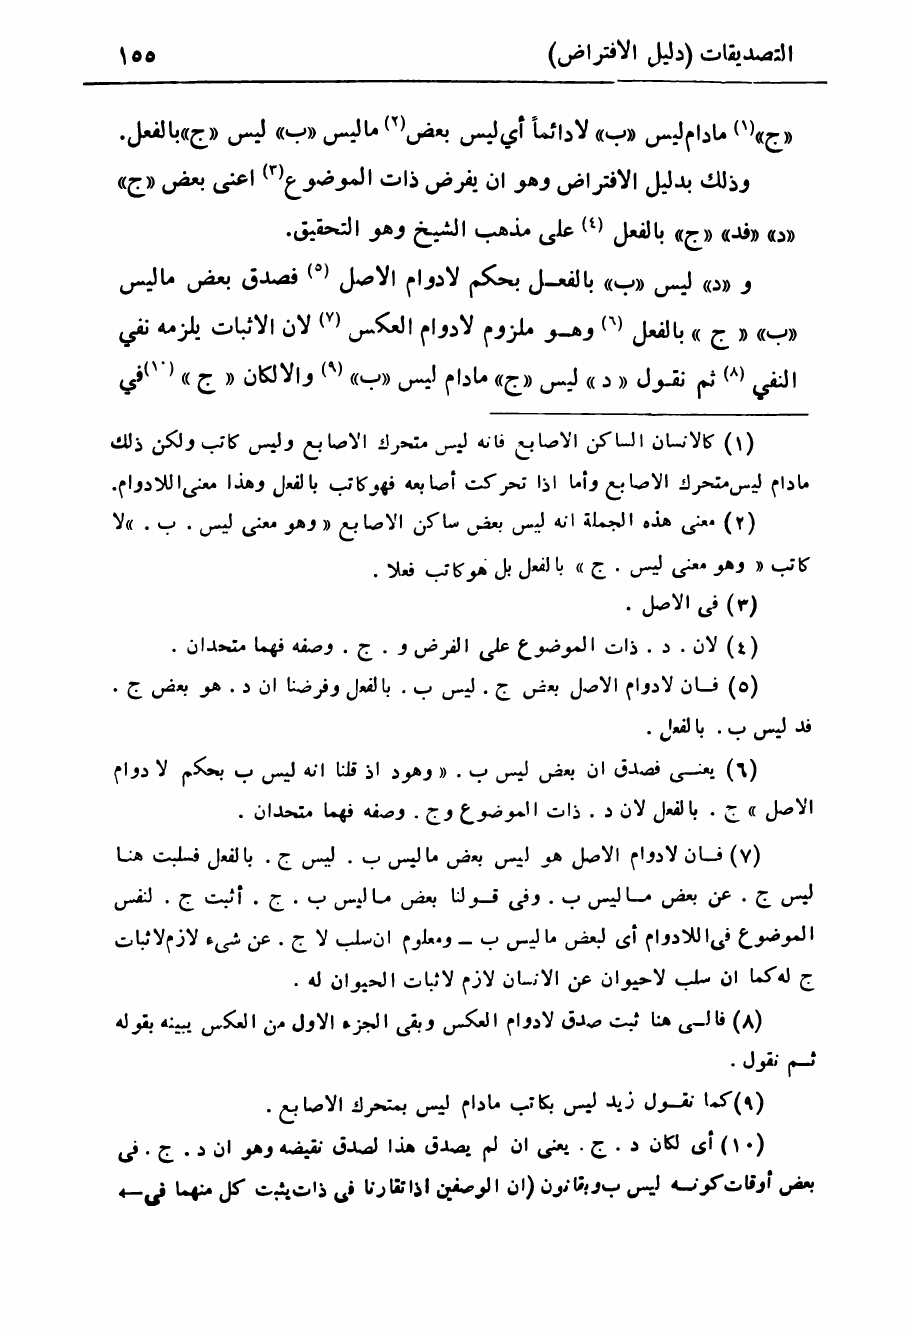 التصديقات (دليل الافتراض) ١٥٥
«ج»(١) مادام ليس «ب» لادائماً أي ليس بعض(٢) ماليس «ب» ليس «ج» بالفعل.
وذلك بدليل الافتراض وهو ان يفرض ذات الموضوع(٣) اعنى بعض «ج»
«د» «فد» «ج» بالفعل (٤) على مذهب الشيخ وهو التحقيق.
و «د» ليس «ب» بالفعــل بحكم لادوام الاصل (٥) فصدق بعض ماليس
«ب» « ج » بالفعل (٦) وهــو ملزوم لادوام العكس (٧) لان الاثبات يلزمه نفي
النفي (٨) ثم نقـول « د » ليس «ج» مادام ليس «ب» (٩) والالكان « ج » (١٠)في
(١) كالانسان الساكن الاصابع فانه ليس متحرك الاصابع وليس كاتب ولكن ذلك
مادام ليس متحرك الاصابع وأما اذا تحركت أصابعه فهوكاتب بالفعل وهذا معنى اللادوام.
(٢) معنى هذه الجملة انه ليس بعض ساكن الاصابع « وهو معنى ليس . ب . «لا
كاتب « وهو معنى ليس . ج » بالفعل بل هوكاتب فعلا .
(٣) فى الاصل .
(٤) لان . د . ذات الموضوع على الفرض و . ج . وصفه فهما متحدان .
(٥) فــان لادوام الاصل بعض ج . ليس ب . بالفعل وفرضنا ان د . هو بعض ج .
فد ليس ب . بالفعل .
(٦) يعنــى فصدق ان بعض ليس ب . « وهود اذ قلنا انه ليس ب بحكم لا دوام
الاصل » ج . بالفعل لان د . ذات الموضوع وج . وصفه فهما متحدان .
(٧) فــان لادوام الاصل هو ليس بعض ماليس ب . ليس ج . بالفعل فسلبت هنـا
ليس ج . عن بعض مــاليس ب . وفى قــولنا بعض مـاليس ب . ج . أثبت ج . لنفس
الموضوع فى اللادوام أى لبعض ماليس ب – ومعلوم ان سلب لا ج . عن شىء لازم لاثبات
ج له كما ان سلب لاحيوان عن الانسان لازم لاثبات الحيوان له .
(٨) فالــى هنا ثبت صدق لادوام العكس وبقى الجزء الاول من العكس يبينه بقوله
ثــم نقول .
(٩)كما نقــول زيد ليس بكاتب مادام ليس بمتحرك الاصابع .
(١٠) أى لكان د . ج . يعنى ان لم يصدق هذا لصدق نقيضه وهو ان د . ج . فى
بعض أوقات كونــه ليس ب وبقانون (ان الوصفين اذا تقارنا فى ذات يثبت كل منهما فى←